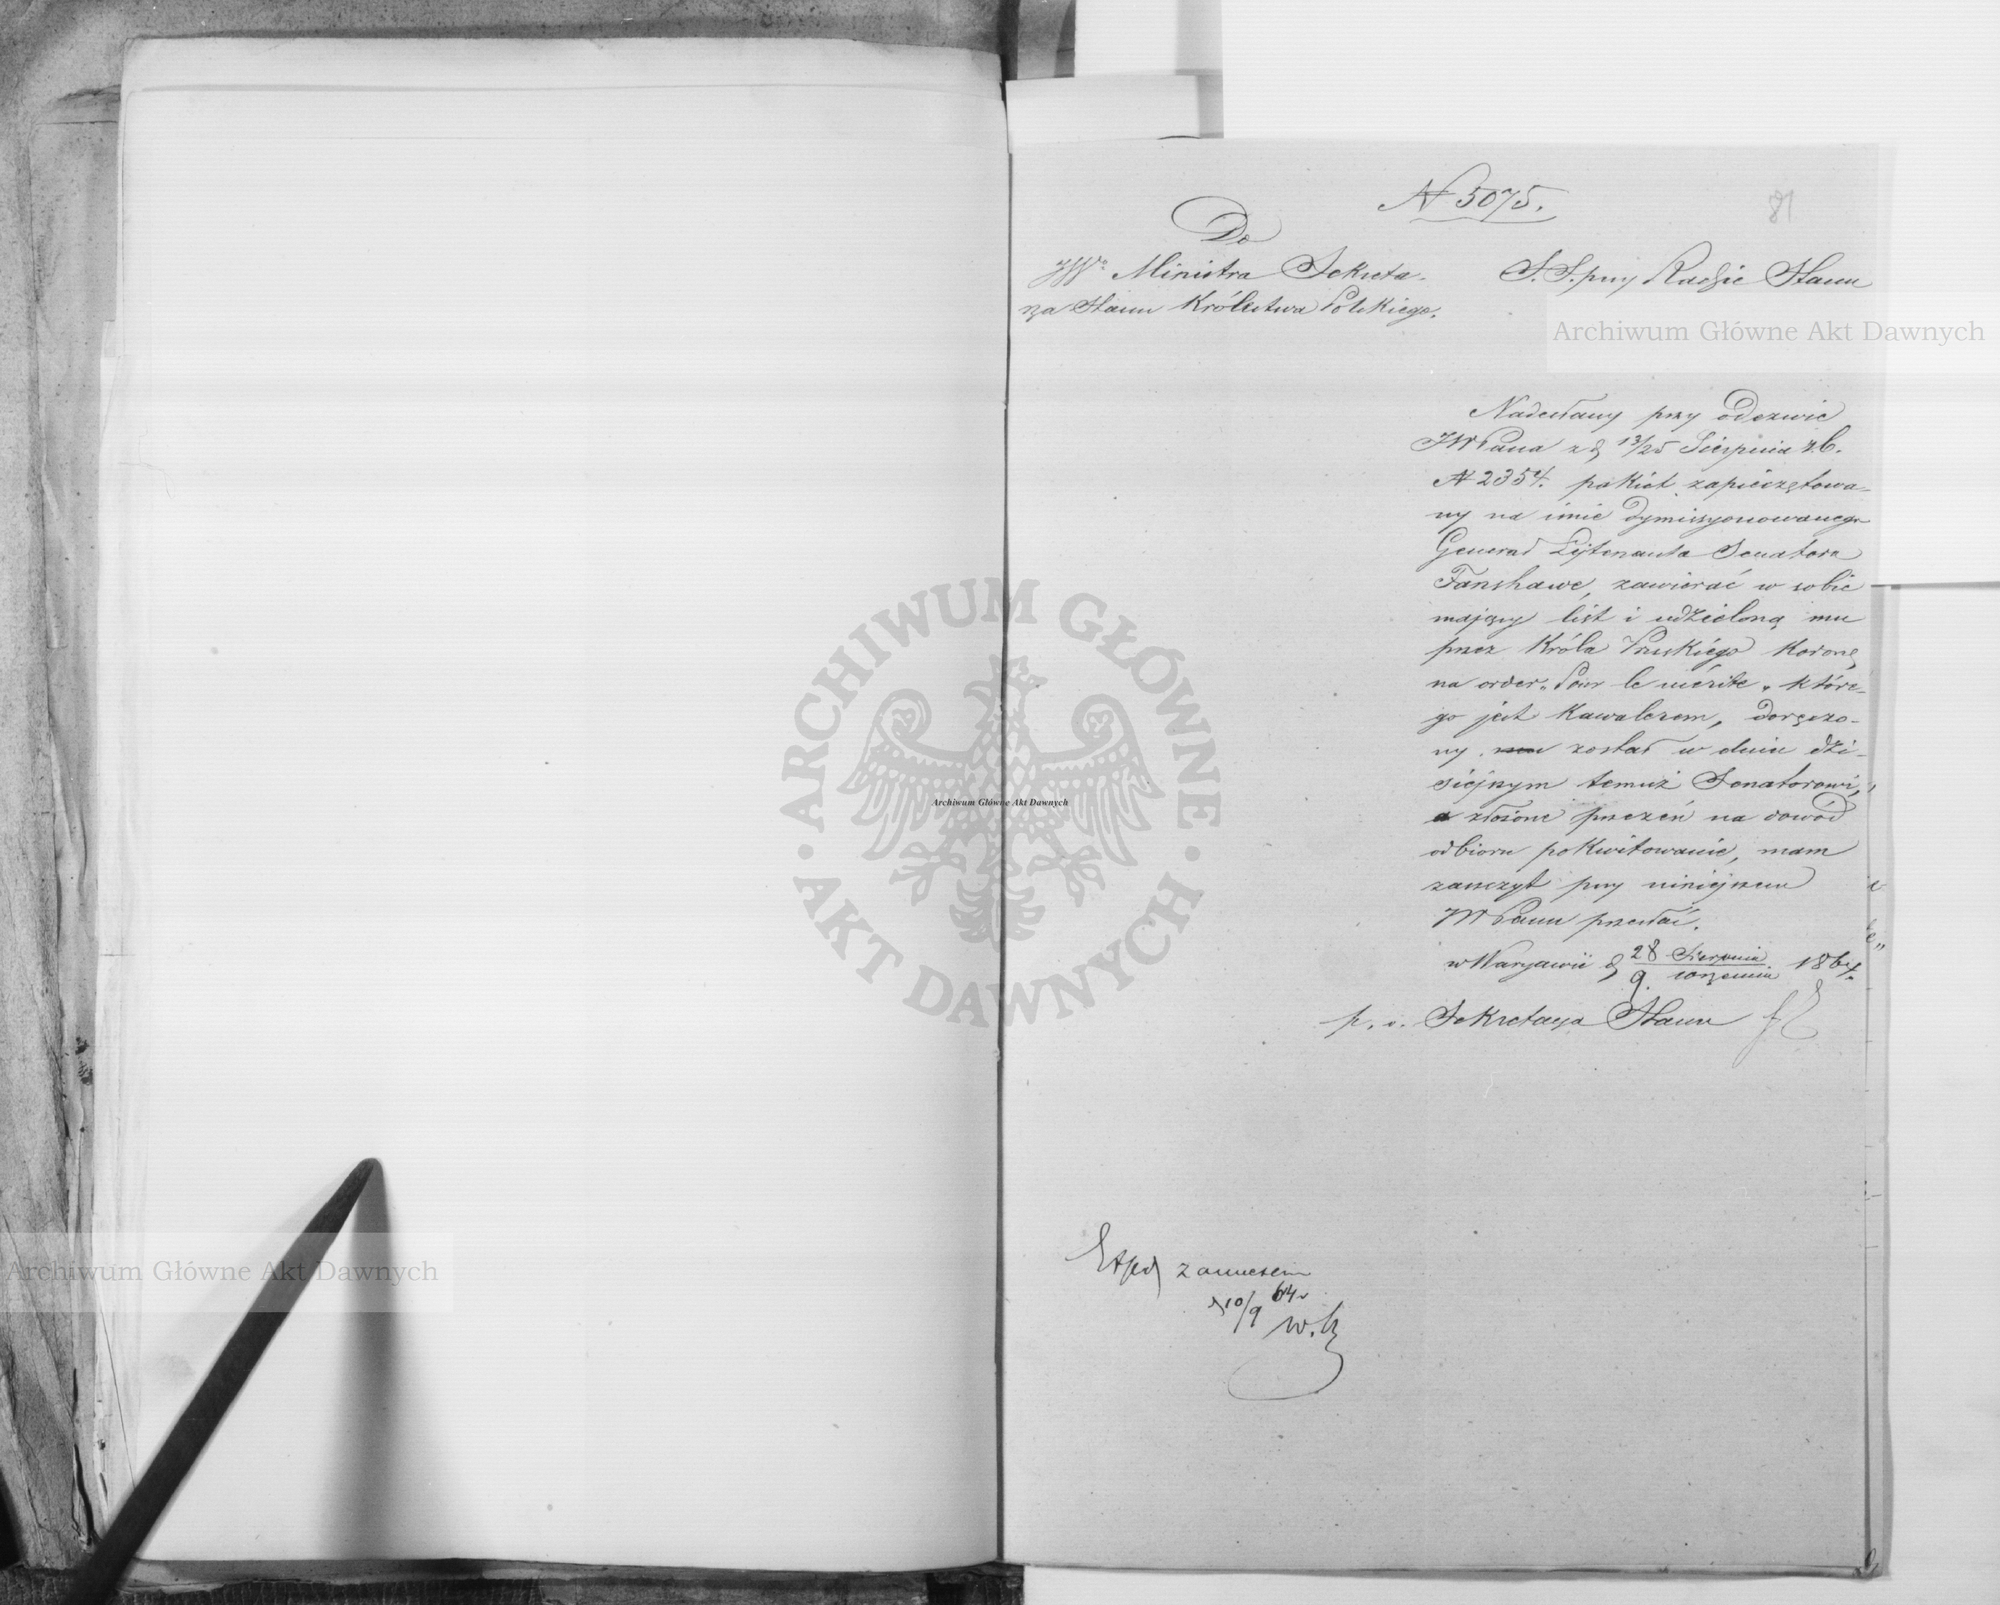 N 5075.
81
Do
JWo Ministra Sekreta-
rza Stanu Królestwa Polskiego.
S. S. przy Radzie Stanu
Nadesłany przy odezwie
JWPana z d 13/25 Sierpnia r.b.
N 2354. pakiet zapieczętowa-
ny na imie dymissyonowanego
Generał Lejtenanta Senatora
Fanshawe, zawierać w sobie
mający list i udzieloną mu
przez Króla Pruskiego Koronę
na order „Pour le mérite„ które-
go jest Kawalerem, doręczo-
ny został w dniu dzi-
siejszym temuż Senatorowi,
a złożone przezeń na dowód
odbioru pokwitowanie, mam
zaszczyt przy niniejszem
JWPanu przesłać.
w Warszawie d 28 Sierpnia / 9. Września 1864.
p. o. Sekretarza Stanu
Exped z annexem
d 10/9 64
Archiwum Główne Akt Dawnych
Archiwum Główne Akt Dawnych
Archiwum Główne Akt Dawnych
ARCHIWUM GŁÓWNE AKT DAWNYCH